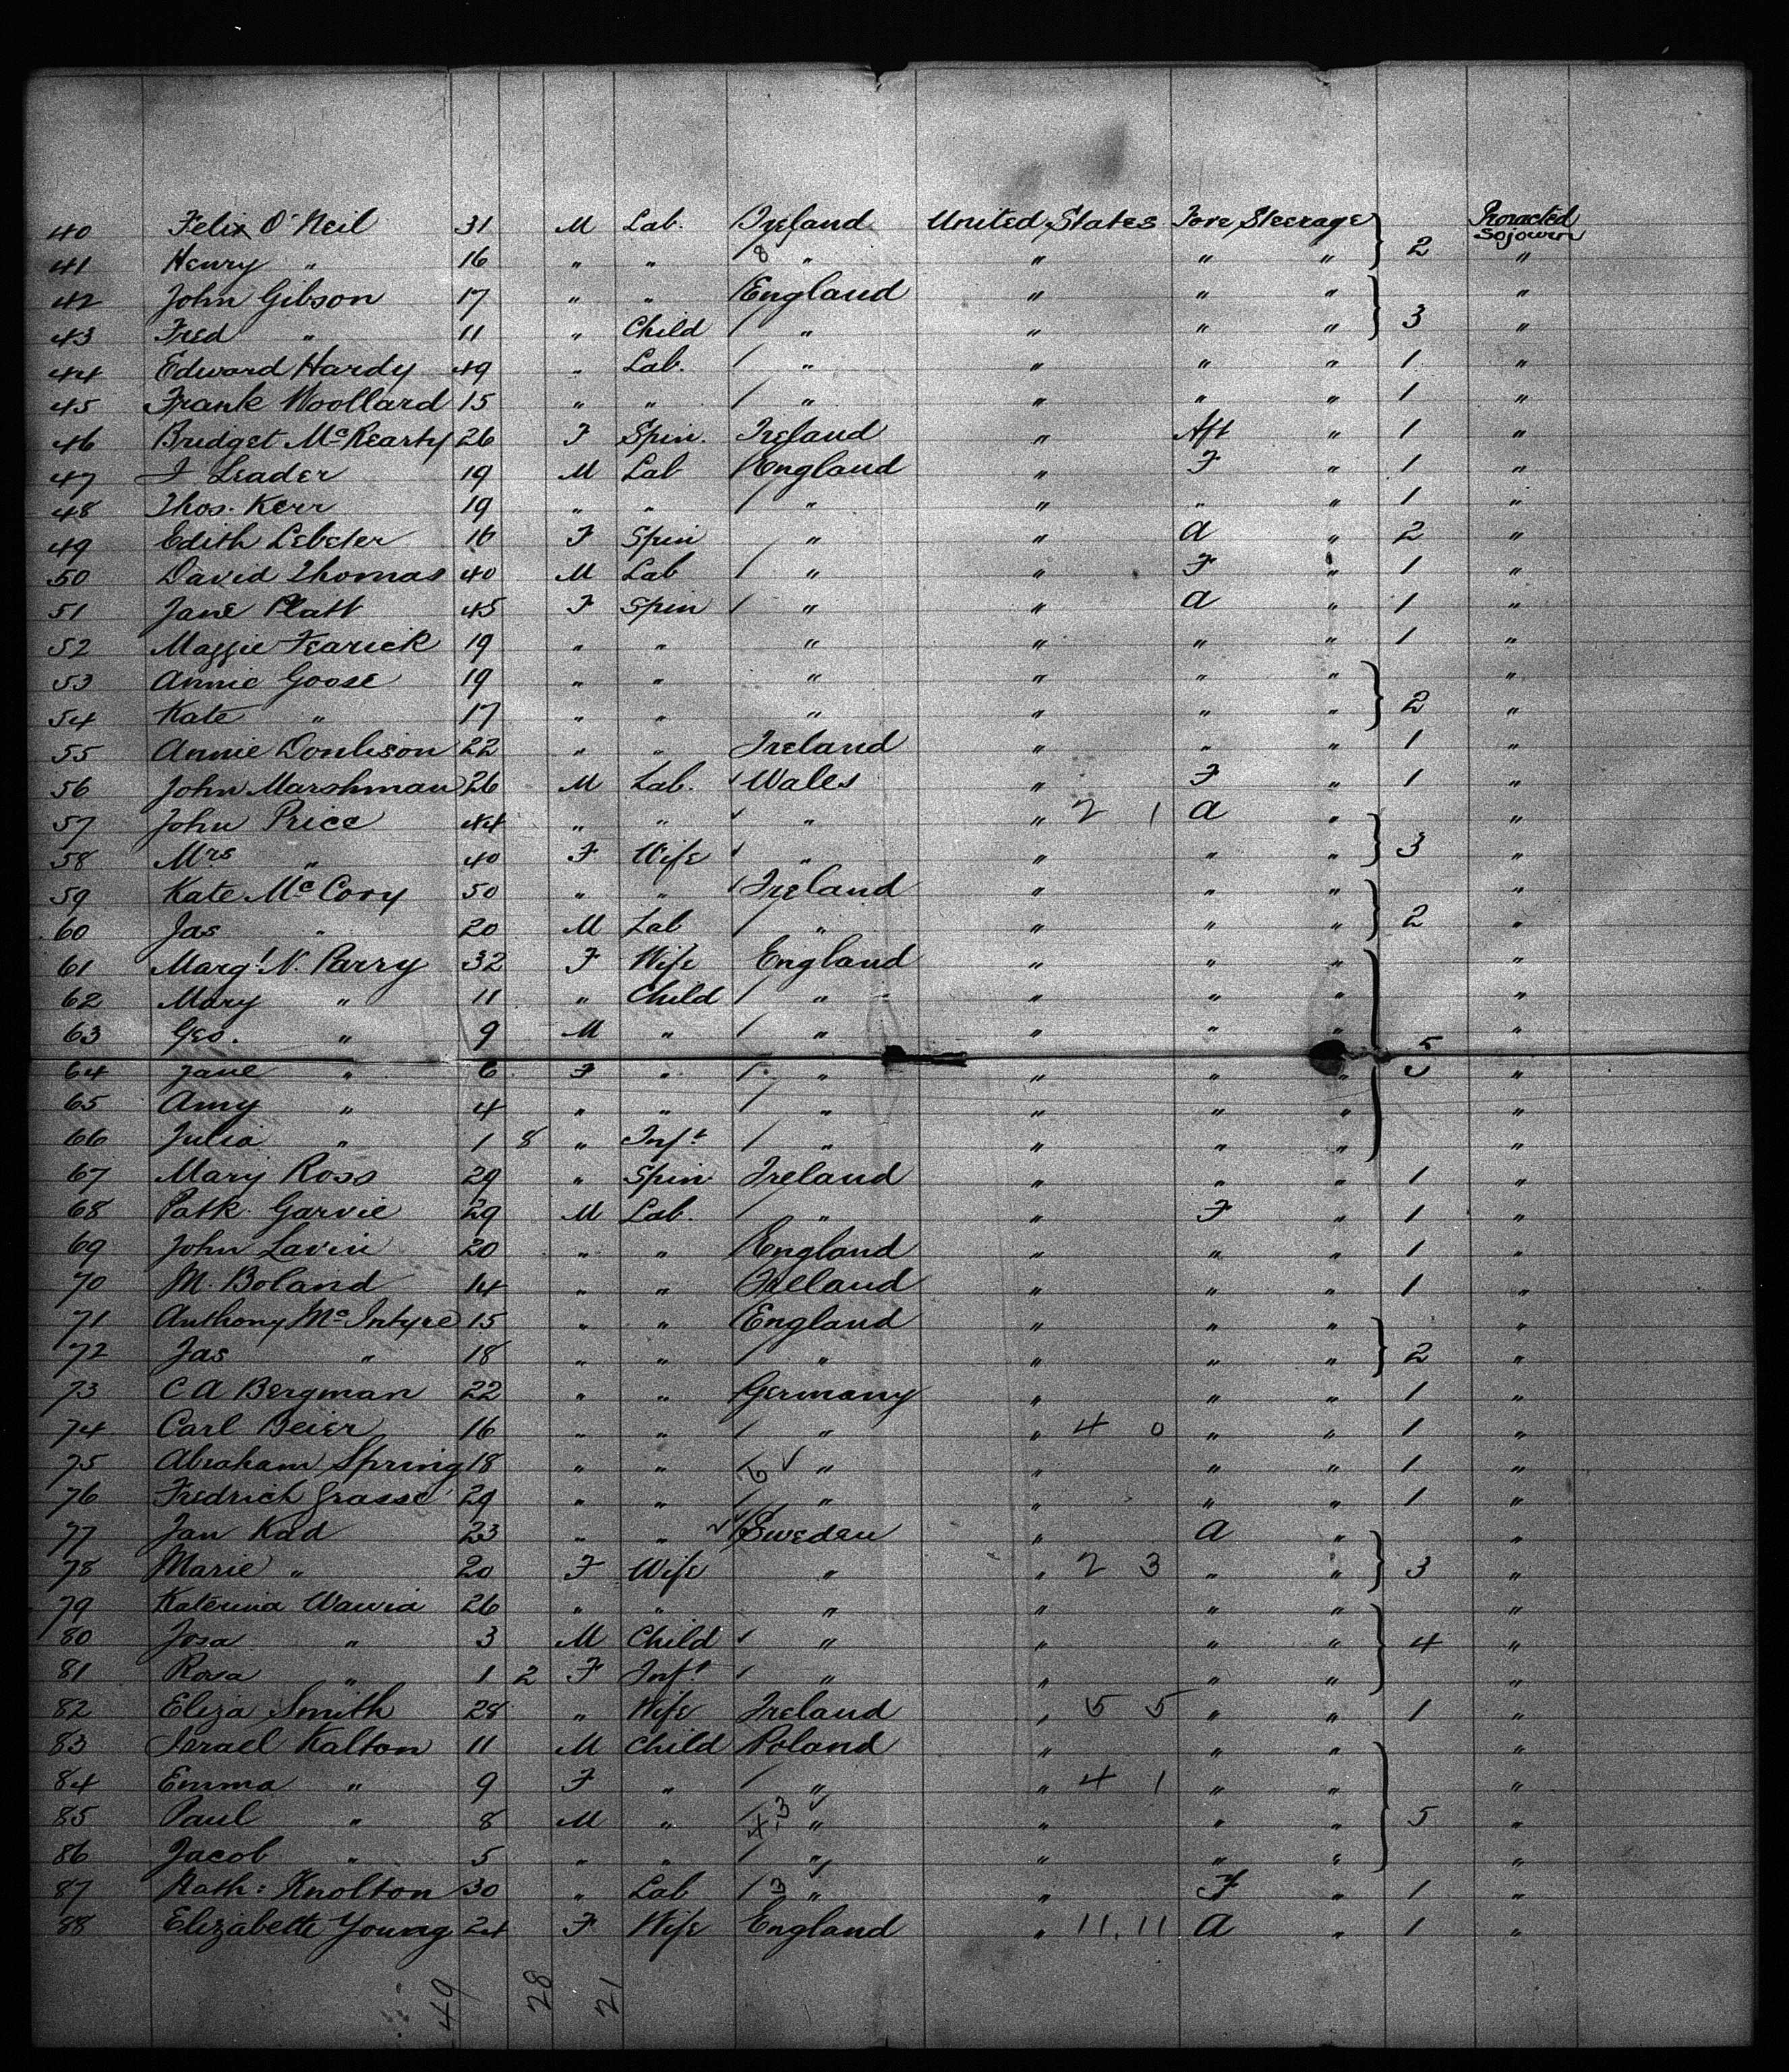 40 Felix O'Neil 31 M Lab. Ireland United States Fore Steerage Proracted Sojourn
41 Henry " 16 " " 8 " " " " 2 "
42 John Gibson 17 " " England " " " "
43 Fred " 11 " Child " " " " 3 "
44 Edward Hardy 49 " Lab. " " " " 1 "
45 Frank Woollard 15 " " " " " " 1 "
46 Bridget McKearty 26 F Spin. Ireland " Aft " 1 "
47 J Leader 19 M Lab England " F " 1 "
48 Thos. Kerr 19 " " " " " " 1 "
49 Edith Lebeter 16 F Spin " " a " 2 "
50 David Thomas 40 M Lab " " F " 1 "
51 Jane Platt 45 F Spin " " a " 1 "
52 Maggie Fearick 19 " " " " " " 1 "
53 Annie Goose 19 " " " " " " "
54 Kate " 17 " " " " " " 2 "
55 Annie Donlison 22 " " Ireland " " " 1 "
56 John Marshman 26 M Lab. Wales " F " 1 "
57 John Price 44 " " " " 2 1 a " "
58 Mrs " 40 F Wife " " " " 3 "
59 Kate McCory 50 " " Ireland " " " "
60 Jas " 20 M Lab " " " " 2 "
61 Margt. N. Parry 32 F Wife England " " " "
62 Mary " 11 " Child " " " " "
63 Geo. " 9 M " " " " " "
64 Jane " 6 F " " " " " 5 "
65 Amy " 4 " " " " " " "
66 Julia " 1 8 " Inft " " " " "
67 Mary Ross 29 " Spin Ireland " " " 1 "
68 Patk. Garvie 29 M Lab. " " F " 1 "
69 John Lavin 20 " " England " " " 1 "
70 M. Boland 14 " " Ireland " " " 1 "
71 Anthony McIntyre 15 " " England " " " "
72 Jas " 18 " " " " " " 2 "
73 C A Bergman 22 " " Germany " " " 1 "
74 Carl Beier 16 " " " " 4 0 " " 1 "
75 Abraham Spring 18 " " 6 " " " " 1 "
76 Fredrich Grasse 29 " " " " " " 1 "
77 Jan Kad 23 " " Sweden " a " "
78 Marie " 20 F Wife " " 2 3 " " 3 "
79 Katerina Wawia 26 " " " " " " "
80 Josa " 3 M Child " " " " 4 "
81 Rosa " 1 2 F Inft " " " " "
82 Eliza Smith 28 " Wife Ireland " 5 5 " " 1 "
83 Israel Kalton 11 M Child Poland " " " "
84 Emma " 9 F " " " 4 1 " " "
85 Paul " 8 M " 4-3 " " " " 5 "
86 Jacob " 5 " " " " " " "
87 Nath: Knolton 30 " Lab 3 " " F " 1 "
88 Elizabeth Young 24 F Wife England " 11.11 a " 1 "
49 28 21